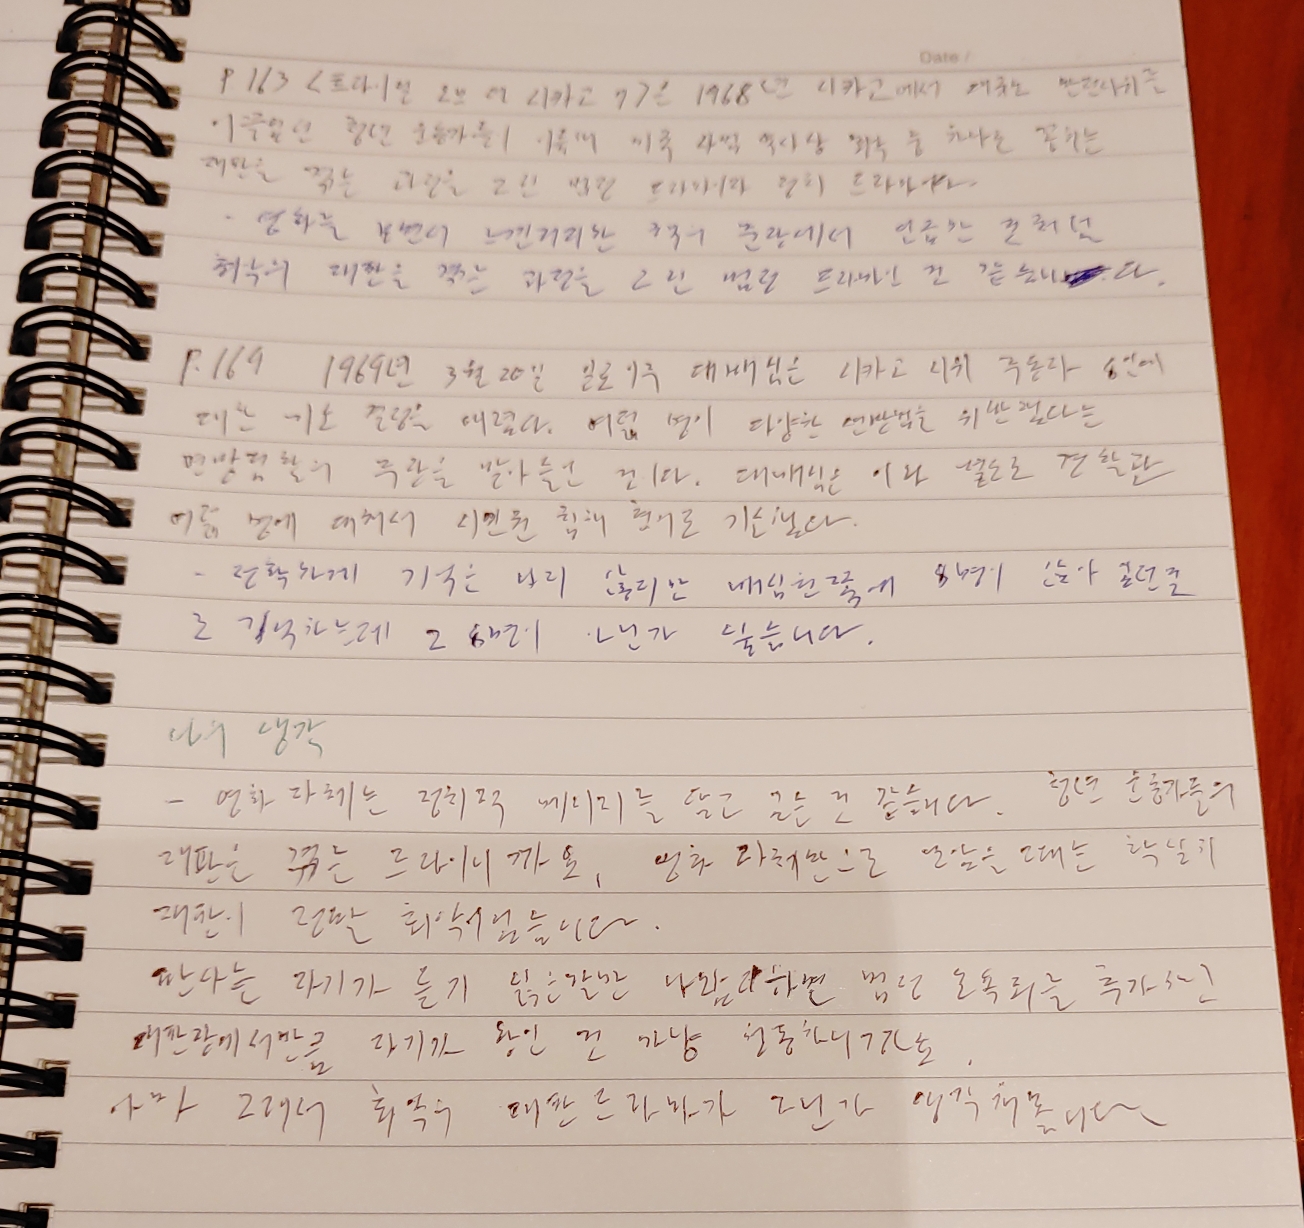 Date /
P 163 <트라이얼 오브 더 시카고 7>은 1968년 시카고에서 반전시위를
이끌었던 청년 운동가들이 미국 사법 역사상 최악 중 하나로 꼽히는
재판을 겪는 과정을 그린 법정 드라마이자 정치 드라마다.
- 영화를 보면서 느낀거지만 책의 문장에서 언급한 것처럼
최악의 재판을 겪는 과정을 그린 법정 드라마인 건 같습니다.
P.169 1969년 3월 20일 일로이주 대배심은 시카고 시위 주동자 8인에
대한 기소 결정을 내렸다. 여덟 명이 다양한 연방법을 위반했다는
연방검찰의 주장을 받아들인 것이다. 대배심은 이와 별도로 경찰관
여덟 명에 대해서 시민권 침해 혐의로 기소했다.
- 정확하게 기억은 나지 않지만 배심원쪽에 8명이 앉아 있던걸
로 기억하는데 그 8명이 아닌가 싶습니다.
나의 생각
- 영화 자체는 정치적 메시지를 담고 있는 것 같습니다. 청년 운동가들의
재판을 겪는 드라마니까요, 영화 자체만으로 보았을 때는 확실히
재판이 정말 최악이었습니다.
판사는 자기가 듣기 싫은말만 나왔다하면 법정 모독죄를 추가하고
재판장에서만큼 자기가 왕인 것 마냥 행동하니까요.
아마 그래서 최악의 재판 드라마가 아닌가 생각해봅니다